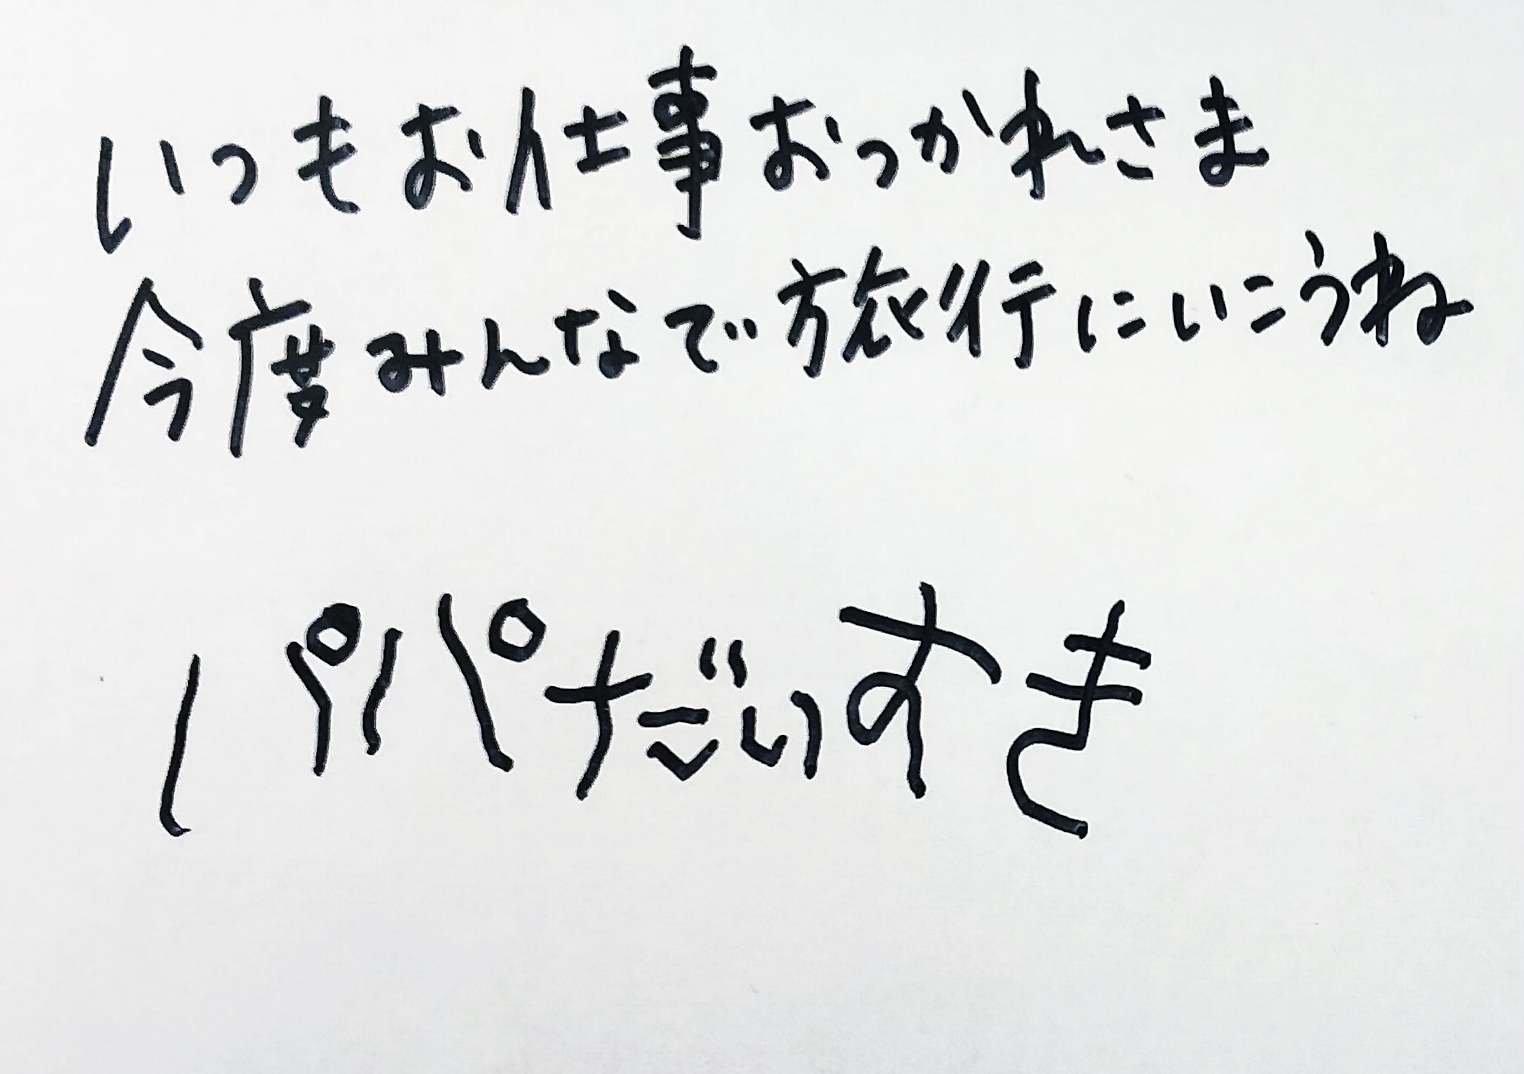 いつもお仕事おつかれさま
今度みんなで旅行にいこうね
パパだいすき